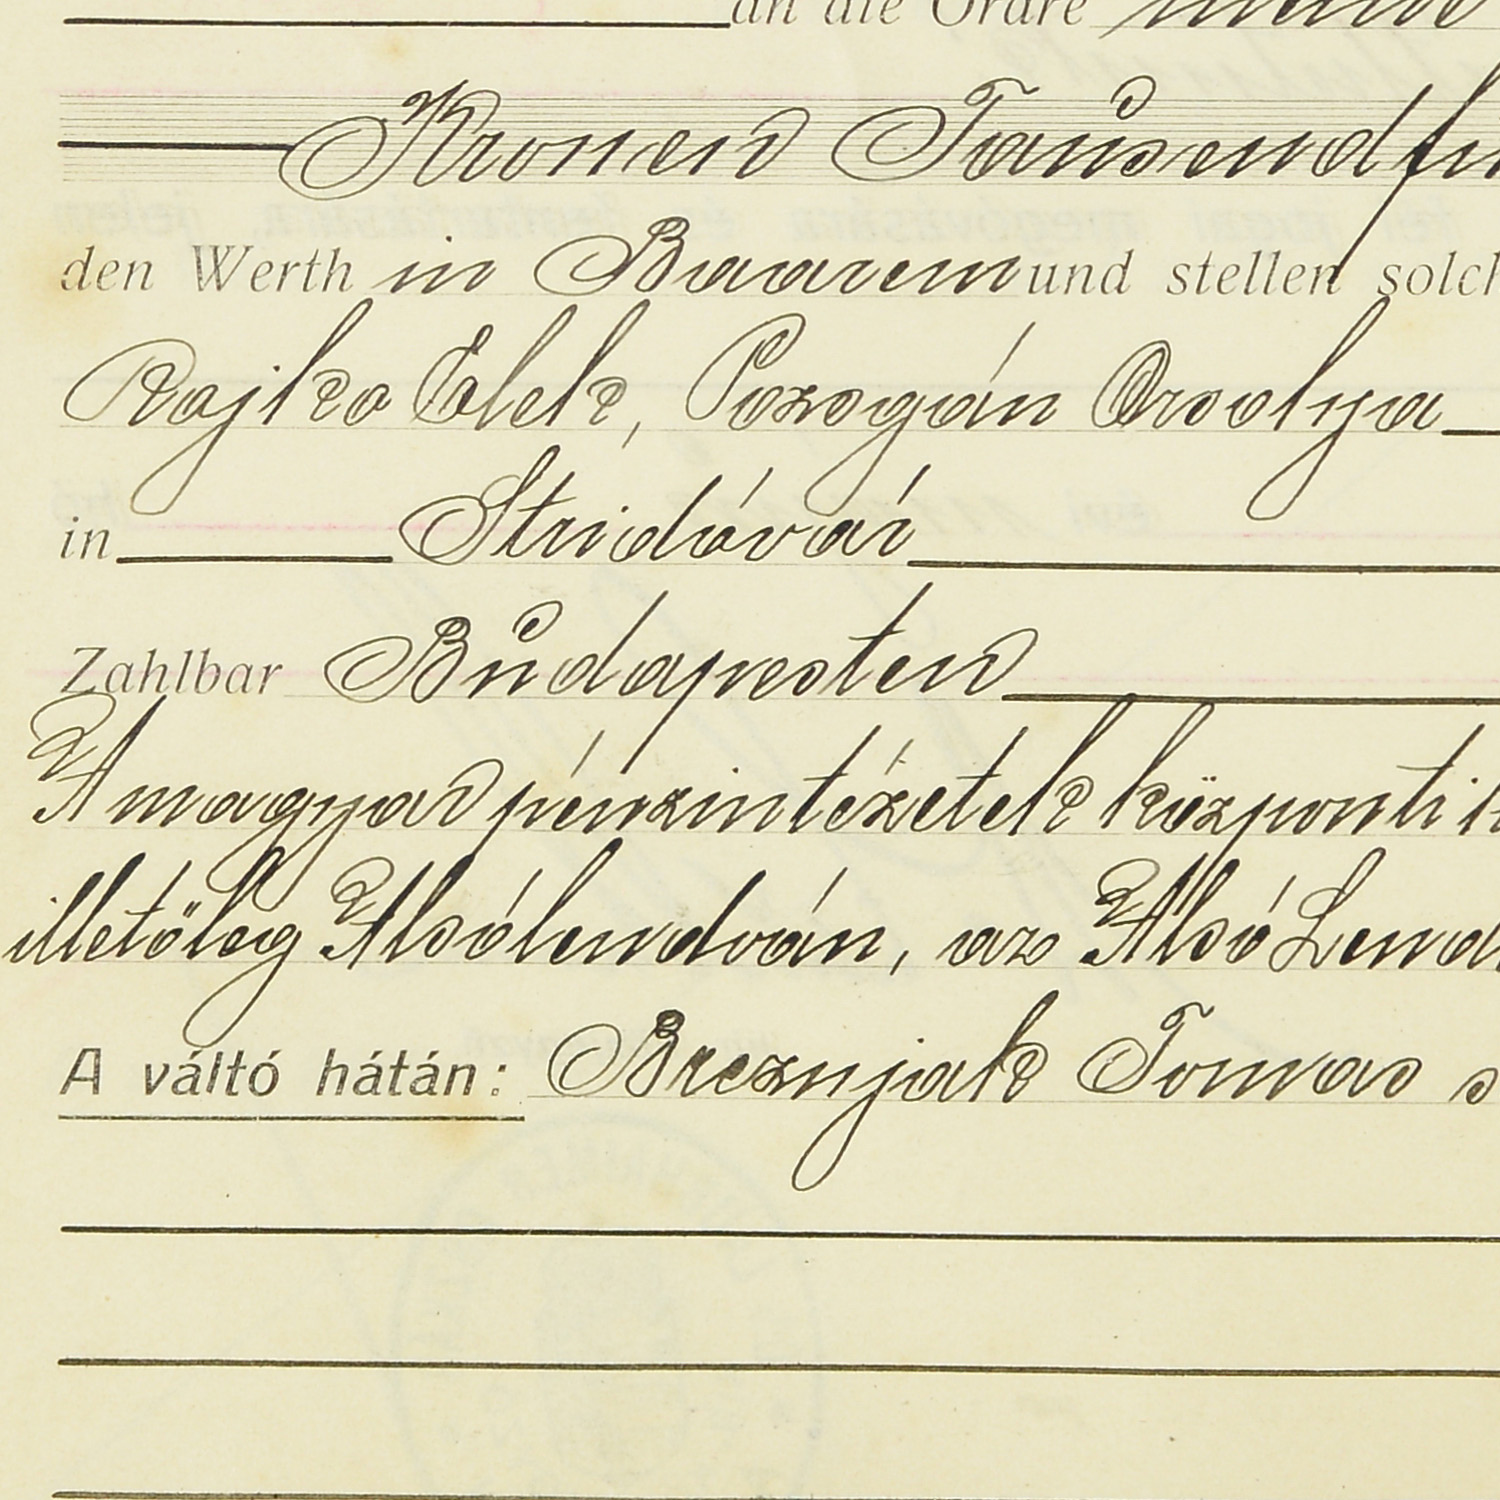 an die Ordre
Kronen Tausend
den Werth in Baarem und stellen solch
Rajko Elek, Pozsgán Orsolya
in Stridóvár
Zahlbar Budapesten
A magyar pénzintézetek központi
illetöleg Alsólendván, az Alsó Lend
A váltó hátán: Breznjak Tomas s